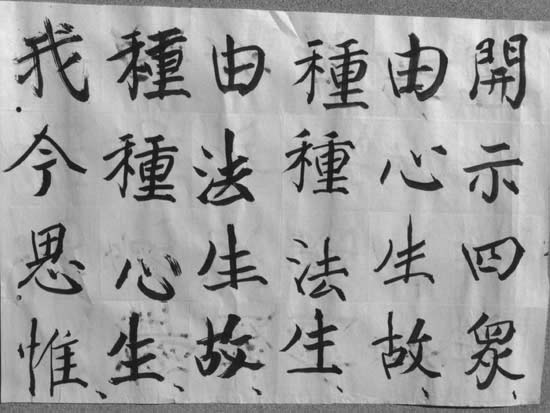 開示四眾、
由心生故、
種種法生、
由法生故、
種種心生、
我今思惟、